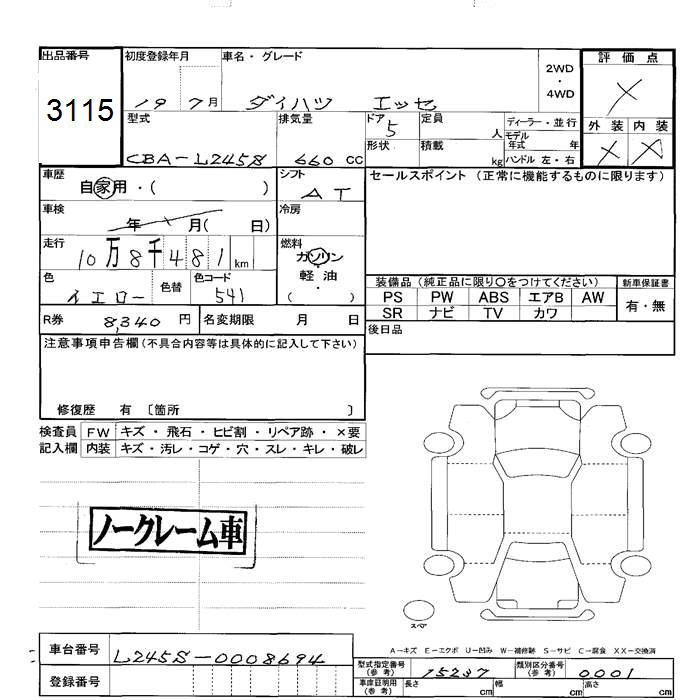 出品番号
3115
初度登録年月
19 7月
車名・グレード
ダイハツ エッセ
2WD
・
4WD
評価点
×
外装 内装
× ×
型式
CBA-L245S
排気量
660 CC
ドア
5
形状
定員
人
積載
kg
ディーラー・並行
モデル
年式 年
ハンドル 左・右
車歴
自家用・( )
シフト
AT
車検
年 月( 日)
冷房
走行
10万8千481km
燃料
ガソリン
軽油
( )
色
イエロー
色替
色コード
541
R券
8,340 円
名変期限 月 日
セールスポイント (正常に機能するものに限ります)
装備品(純正品に限り○をつけてください)
新車保証書
PS PW ABS エアB AW
有・無
SR ナビ TV カワ
後日品
注意事項申告欄(不具合内容等は具体的に記入して下さい)
修復歴 有 〔箇所 〕
検査員
記入欄
FW キズ・飛石・ヒビ割・リペア跡・×要
内装 キズ・汚レ・コゲ・穴・スレ・キレ・破レ
ノークレーム車
スペア
A-キズ E-エクボ U-凹み W-補修跡 S-サビ C-腐食 XX-交換済
車台番号
L245S-0008694
登録番号
型式指定番号
(参考)
15237
類別区分番号
(参考)
0001
車庫証明用
(参考)
長さ cm
幅 cm
高さ cm